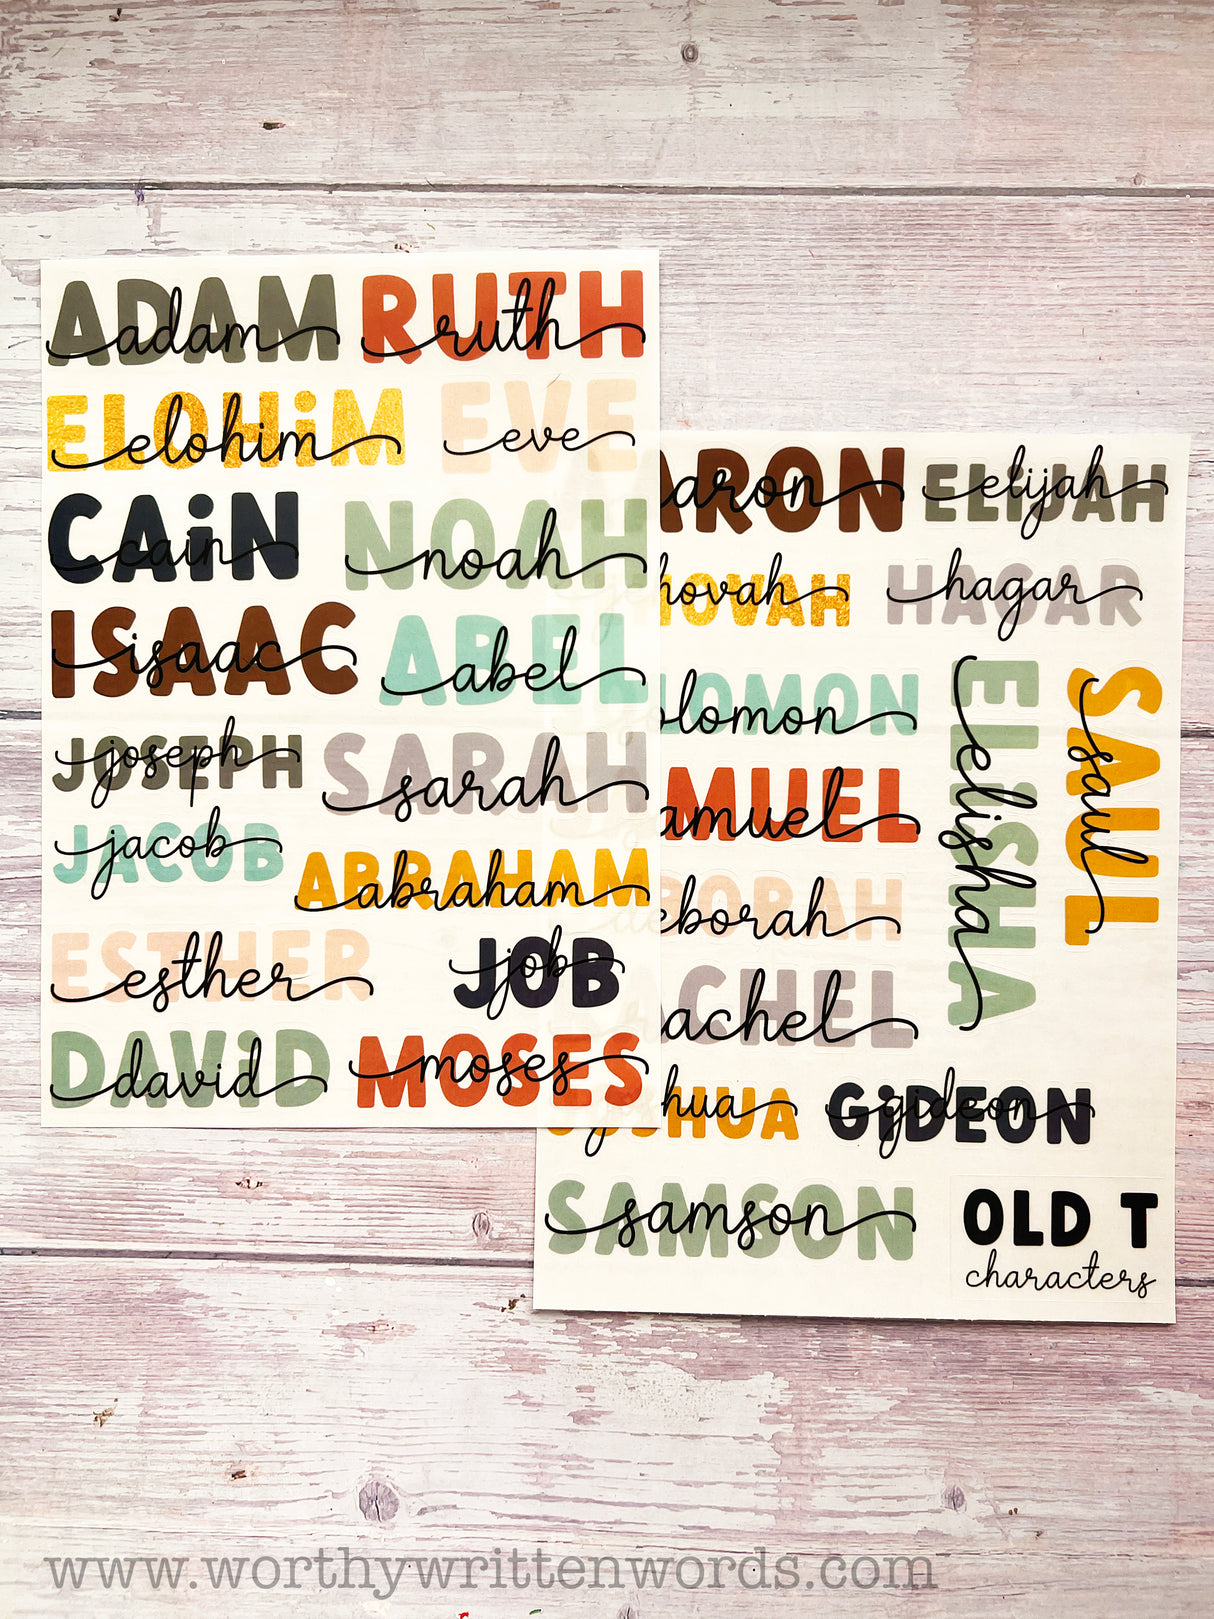 ADAM adam RUTH ruth
ELOHiM elohim EVE eve
CAiN cain NOAH noah
ISAAC isaac ABEL abel
JOSEPH joseph SARAH sarah
JACOB jacob ABRAHAM abraham
ESTHER esther JOB job
DAViD david MOSES moses
ARON aron ELiJAH elijah
HOVAH hovah HAGAR hagar
LOMON olomon
ELiSHA elisha
SAUL saul
AMUEL amuel
BORAH eborah
ACHEL achel
HUA hua GiDEON gideon
SAMSON samson
OLD T
characters
www.worthywrittenwords.com